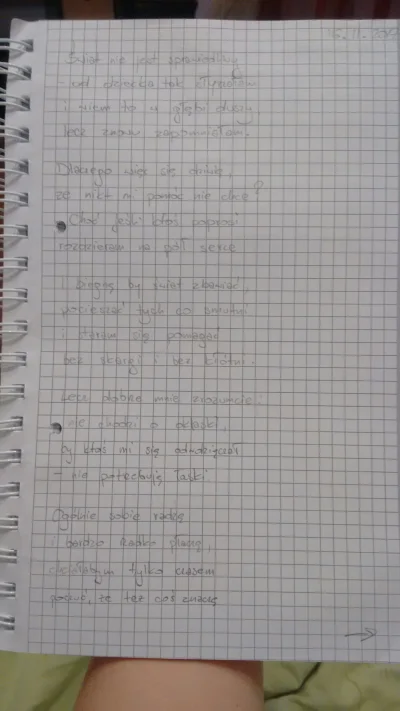 15.11.20
Świat nie jest sprawiedliwy
- od dziecka tak słyszałam
i wiem to w głębi duszy
lecz znowu zapomniałam.
Dlaczego więc się dziwię,
że nikt mi pomóc nie chce?
Choć jeśli ktoś poprosi
rozdzieram na pół serce
i biegnę by świat zbawiać,
pocieszać tych co smutni
i staram się pomagać
bez skargi i bez kłótni.
Lecz dobrze mnie zrozumcie:
nie chodzi o oklaski,
by ktoś mi się odwdzięczał
- nie potrzebuję łaski.
Ogólnie sobie radzę
i bardzo rzadko płaczę,
chciałabym tylko czasem
poczuć, że też coś znaczę
→